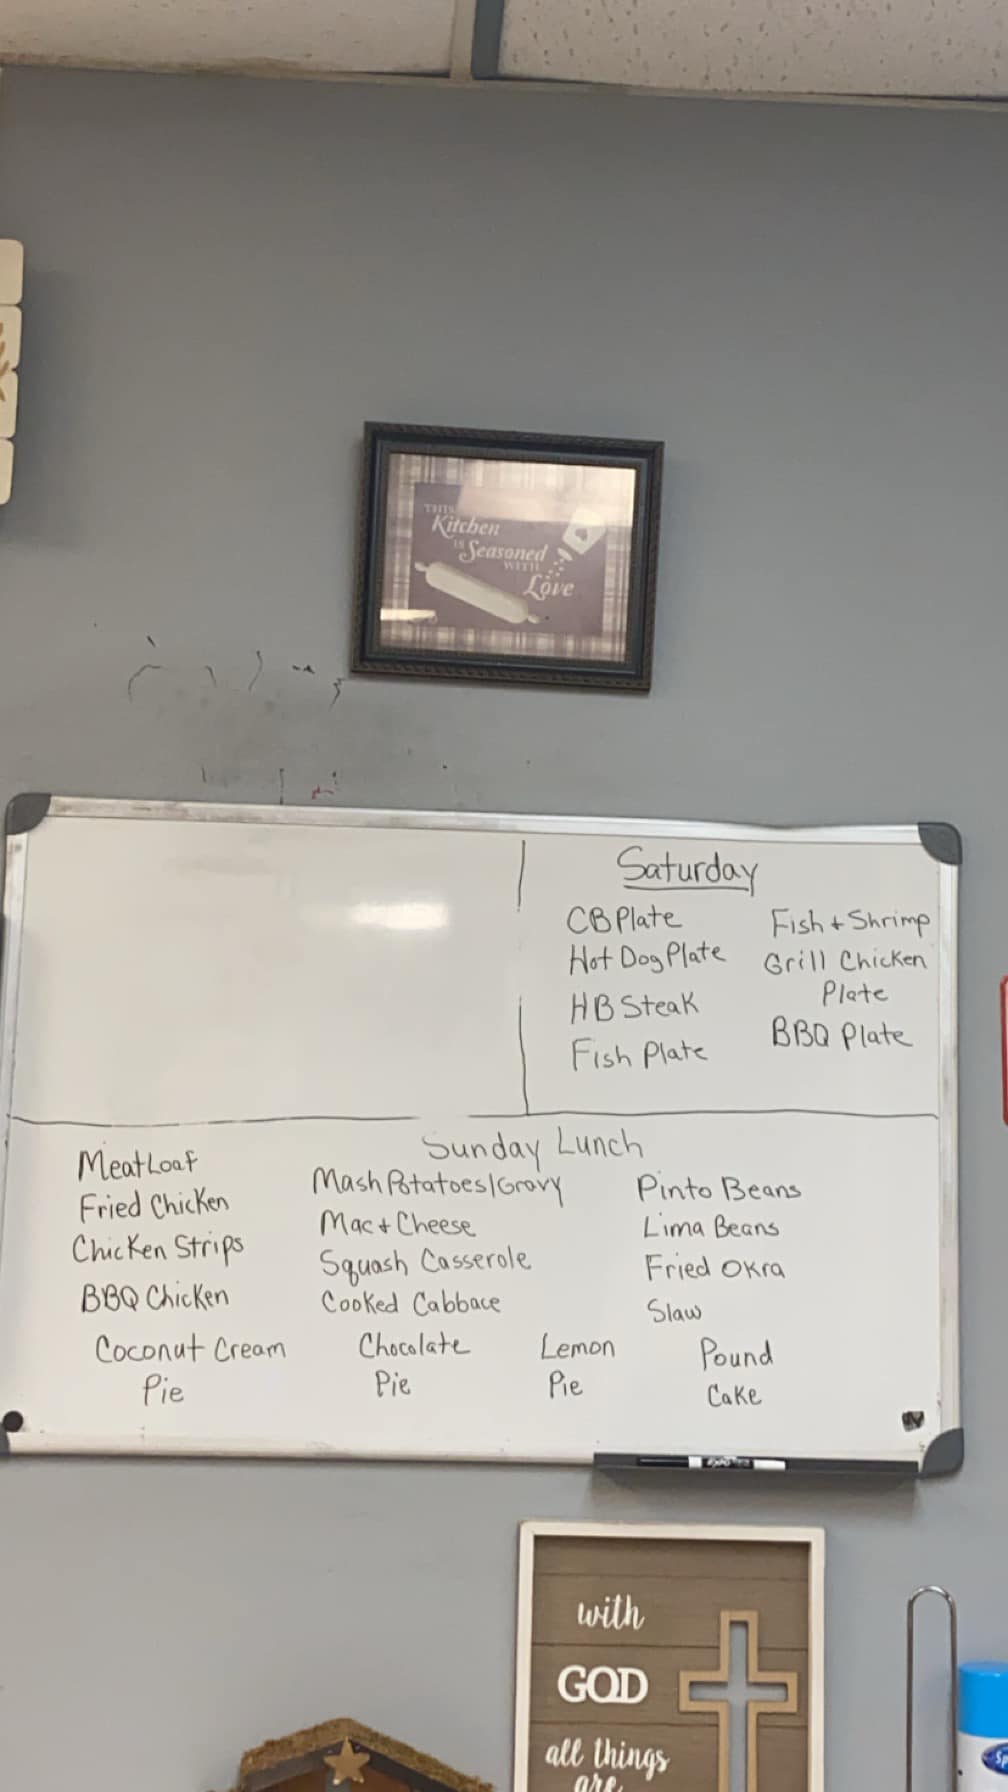 THIS
Kitchen
IS Seasoned
WITH
Love
Saturday
CB Plate
Hot Dog Plate
HB Steak
Fish Plate
Fish + Shrimp
Grill Chicken
Plate
BBQ Plate
Sunday Lunch
MeatLoaf
Fried Chicken
Chicken Strips
BBQ Chicken
Mash Potatoes/Gravy
Mac + Cheese
Squash Casserole
Cooked Cabbace
Pinto Beans
Lima Beans
Fried Okra
Slaw
Coconut Cream
Pie
Chocolate
Pie
Lemon
Pie
Pound
Cake
with
GOD
all things
are